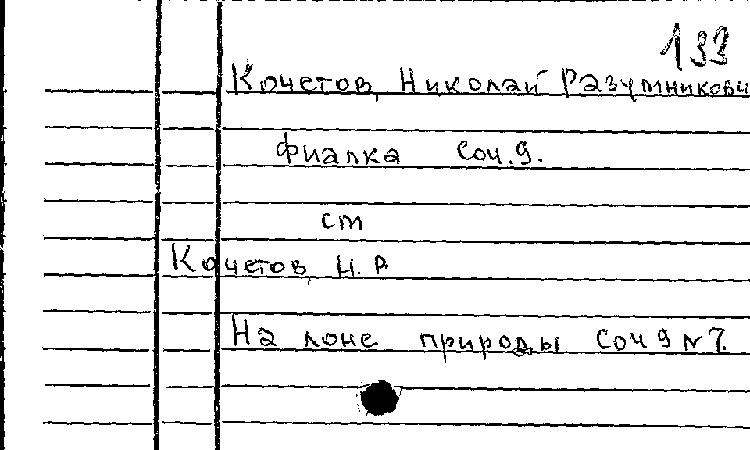 133
Кочетов, Николай Разумникови
Фиалка Соч. 9.
см
Кочетов, Н. Р
На лоне природы Соч 9 N 7.